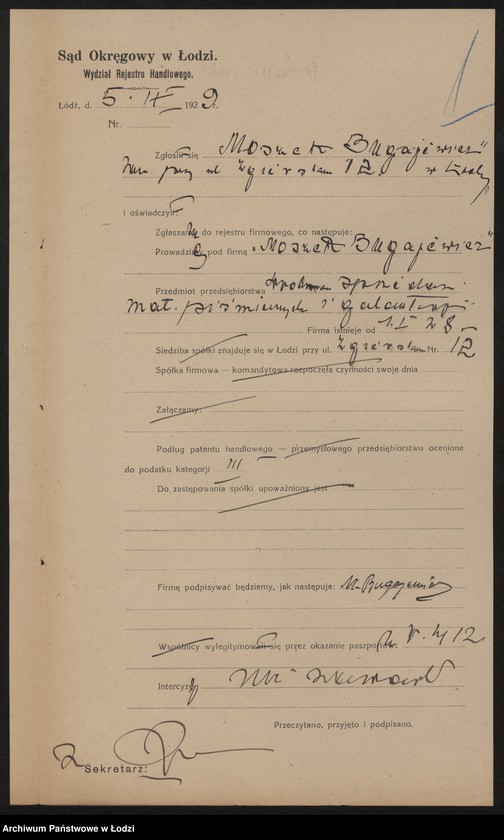 Sąd Okręgowy w Łodzi.
Wydział Rejestru Handlowego.
Łódź, d. 5. II 1929 r.
Nr.
Zgłosił się „Moszek Bugajewicz"
zam przy ul Zgierskiej 12. w Łodzi
i oświadczył:
Zgłaszam do rejestru firmowego, co następuje:
Prowadzę pod firmą „Moszek Bugajewicz"
Przedmiot przedsiębiorstwa drobna sprzedaż
mat. piśmiennych i galanterji
Firma istnieje od 1.I 28
Siedziba spółki znajduje się w Łodzi przy ul. Zgierskiej Nr. 12
Spółka firmowa — komandytowa rozpoczęła czynności swoje dnia
Załączamy:
Podług patentu handlowego — przemysłowego przedsiębiorstwo ocenione
do podatku kategorji III
Do zastępowania spółki upoważniony jest
Firmę podpisywać będziemy, jak następuje: M. Bugajewicz
Wspólnicy wylegitymowali się przez okazanie paszportów
Intercyzy nie zawarł
Przeczytano, przyjęto i podpisano.
Sekretarz:
Archiwum Państwowe w Łodzi